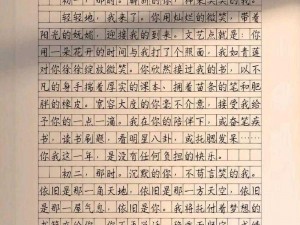 初一，那时。崭新的你，
轻轻地，我来了。你用灿烂的微笑，带着
阳光的妩媚，迎接我的到来。文艺点就是：你
用一朵花开的时间与我打了个照面。我如青莲
对你徐徐绽放微笑。你欣然接过我的书，以不
凡的身手揣着厚实的课本，拥着苗条的笔和肥
胖的橡皮。宽容大度的你毫不介意，接受我给
予你的一点一滴。我在你的陪伴下，或奋笔疾
书，读书刷题，看明星八卦，或托腮发呆
你我这一年，是没有任何负担的快乐。
初二，那时，沉默的你，不苟言笑的我。
依旧是那一角天地，依旧是那一方天空，依旧
是那一屋气息，依旧是你。我将托付着梦想的